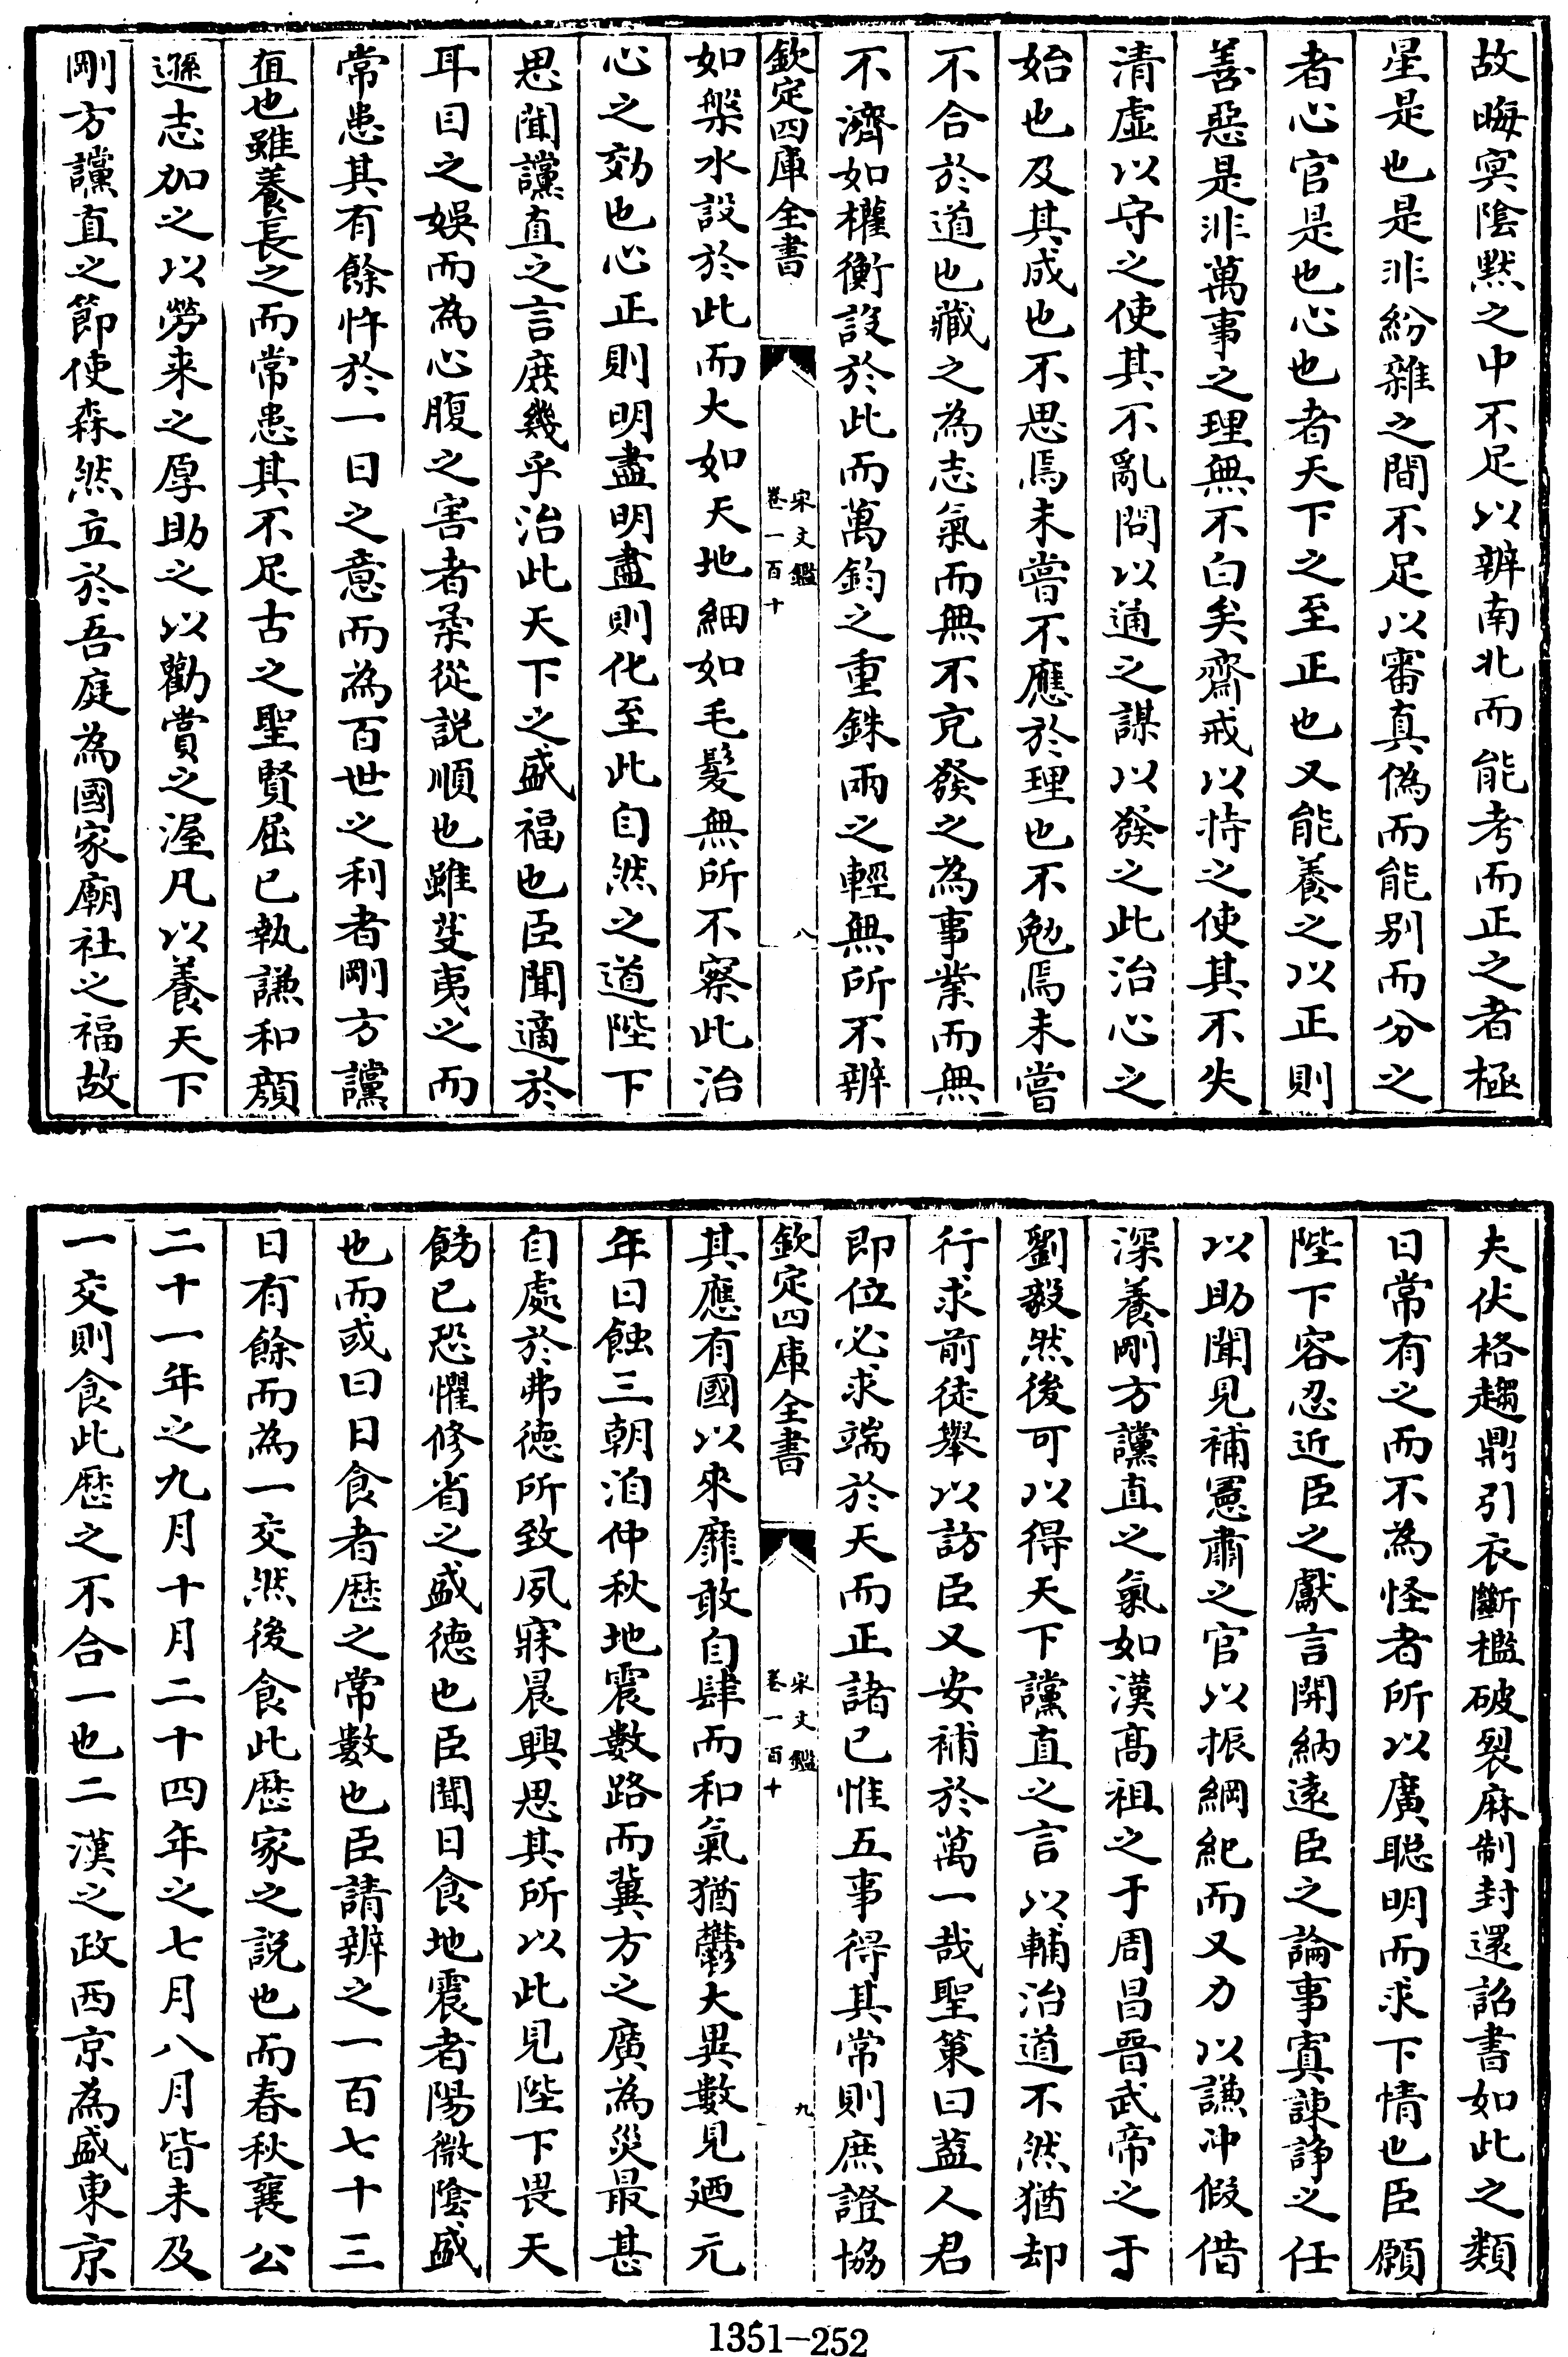 故晦㝠隂黙之中不足以辨南北而能考而正之者極
星是也是非紛雜之間不足以審真偽而能别而分之
者心官是也心也者天下之至正也又能養之以正則
善惡是非萬事之理無不白矣齋戒以恃之使其不失
清虛以守之使其不亂問以通之謀以發之此治心之
始也及其成也不思焉未嘗不應於理也不勉焉未嘗
不合於道也藏之為志氣而無不充發之為事業而無
不濟如權衡設於此而萬鈞之重銖兩之輕無所不辨
欽定四庫全書 宋文鑑 卷一百十 八
如槃水設於此而大如天地細如毛髮無所不察此治
心之効也心正則明盡明盡則化至此自然之道陛下
思聞讜直之言庶幾乎治此天下之盛福也臣聞適於
耳目之娛而為心腹之害者柔從説順也雖芟夷之而
常患其有餘忤於一日之意而為百世之利者剛方讜
直也雖養長之而常患其不足古之聖賢屈已執謙和顔
遜志加之以勞来之厚助之以勸賞之渥凡以養天下
剛方讜直之節使森然立於吾庭為國家廟社之福故
夫伏格趨鼎引衣斷檻破裂麻制封還詔書如此之類
日常有之而不為怪者所以廣聰明而求下情也臣願
陛下容忍近臣之獻言開納逺臣之論事寘諫諍之任
以助聞見補憲肅之官以振綱紀而又力以謙冲假借
深養剛方讜直之氣如漢髙祖之于周昌晉武帝之于
劉毅然後可以得天下讜直之言以輔治道不然猶却
行求前徒舉以訪臣又安補於萬一哉聖策曰葢人君
即位必求端於天而正諸已惟五事得其常則庶證協
欽定四庫全書 宋文鑑 卷一百十 九
其應有國以來靡敢自肆而和氣猶鬱大異數見廼元
年日蝕三朝洎仲秋地震數路而冀方之廣為災最甚
自處於弗徳所致夙寐晨興思其所以此見陛下畏天
飭已恐懼修省之盛徳也臣聞日食地震者陽微隂盛
也而或曰日食者厯之常數也臣請辨之一百七十三
日有餘而為一交然後食此厯家之説也而春秋襄公
二十一年之九月十月二十四年之七月八月皆未及
一交則食此厯之不合一也二漢之政西京為盛東京
1351-252